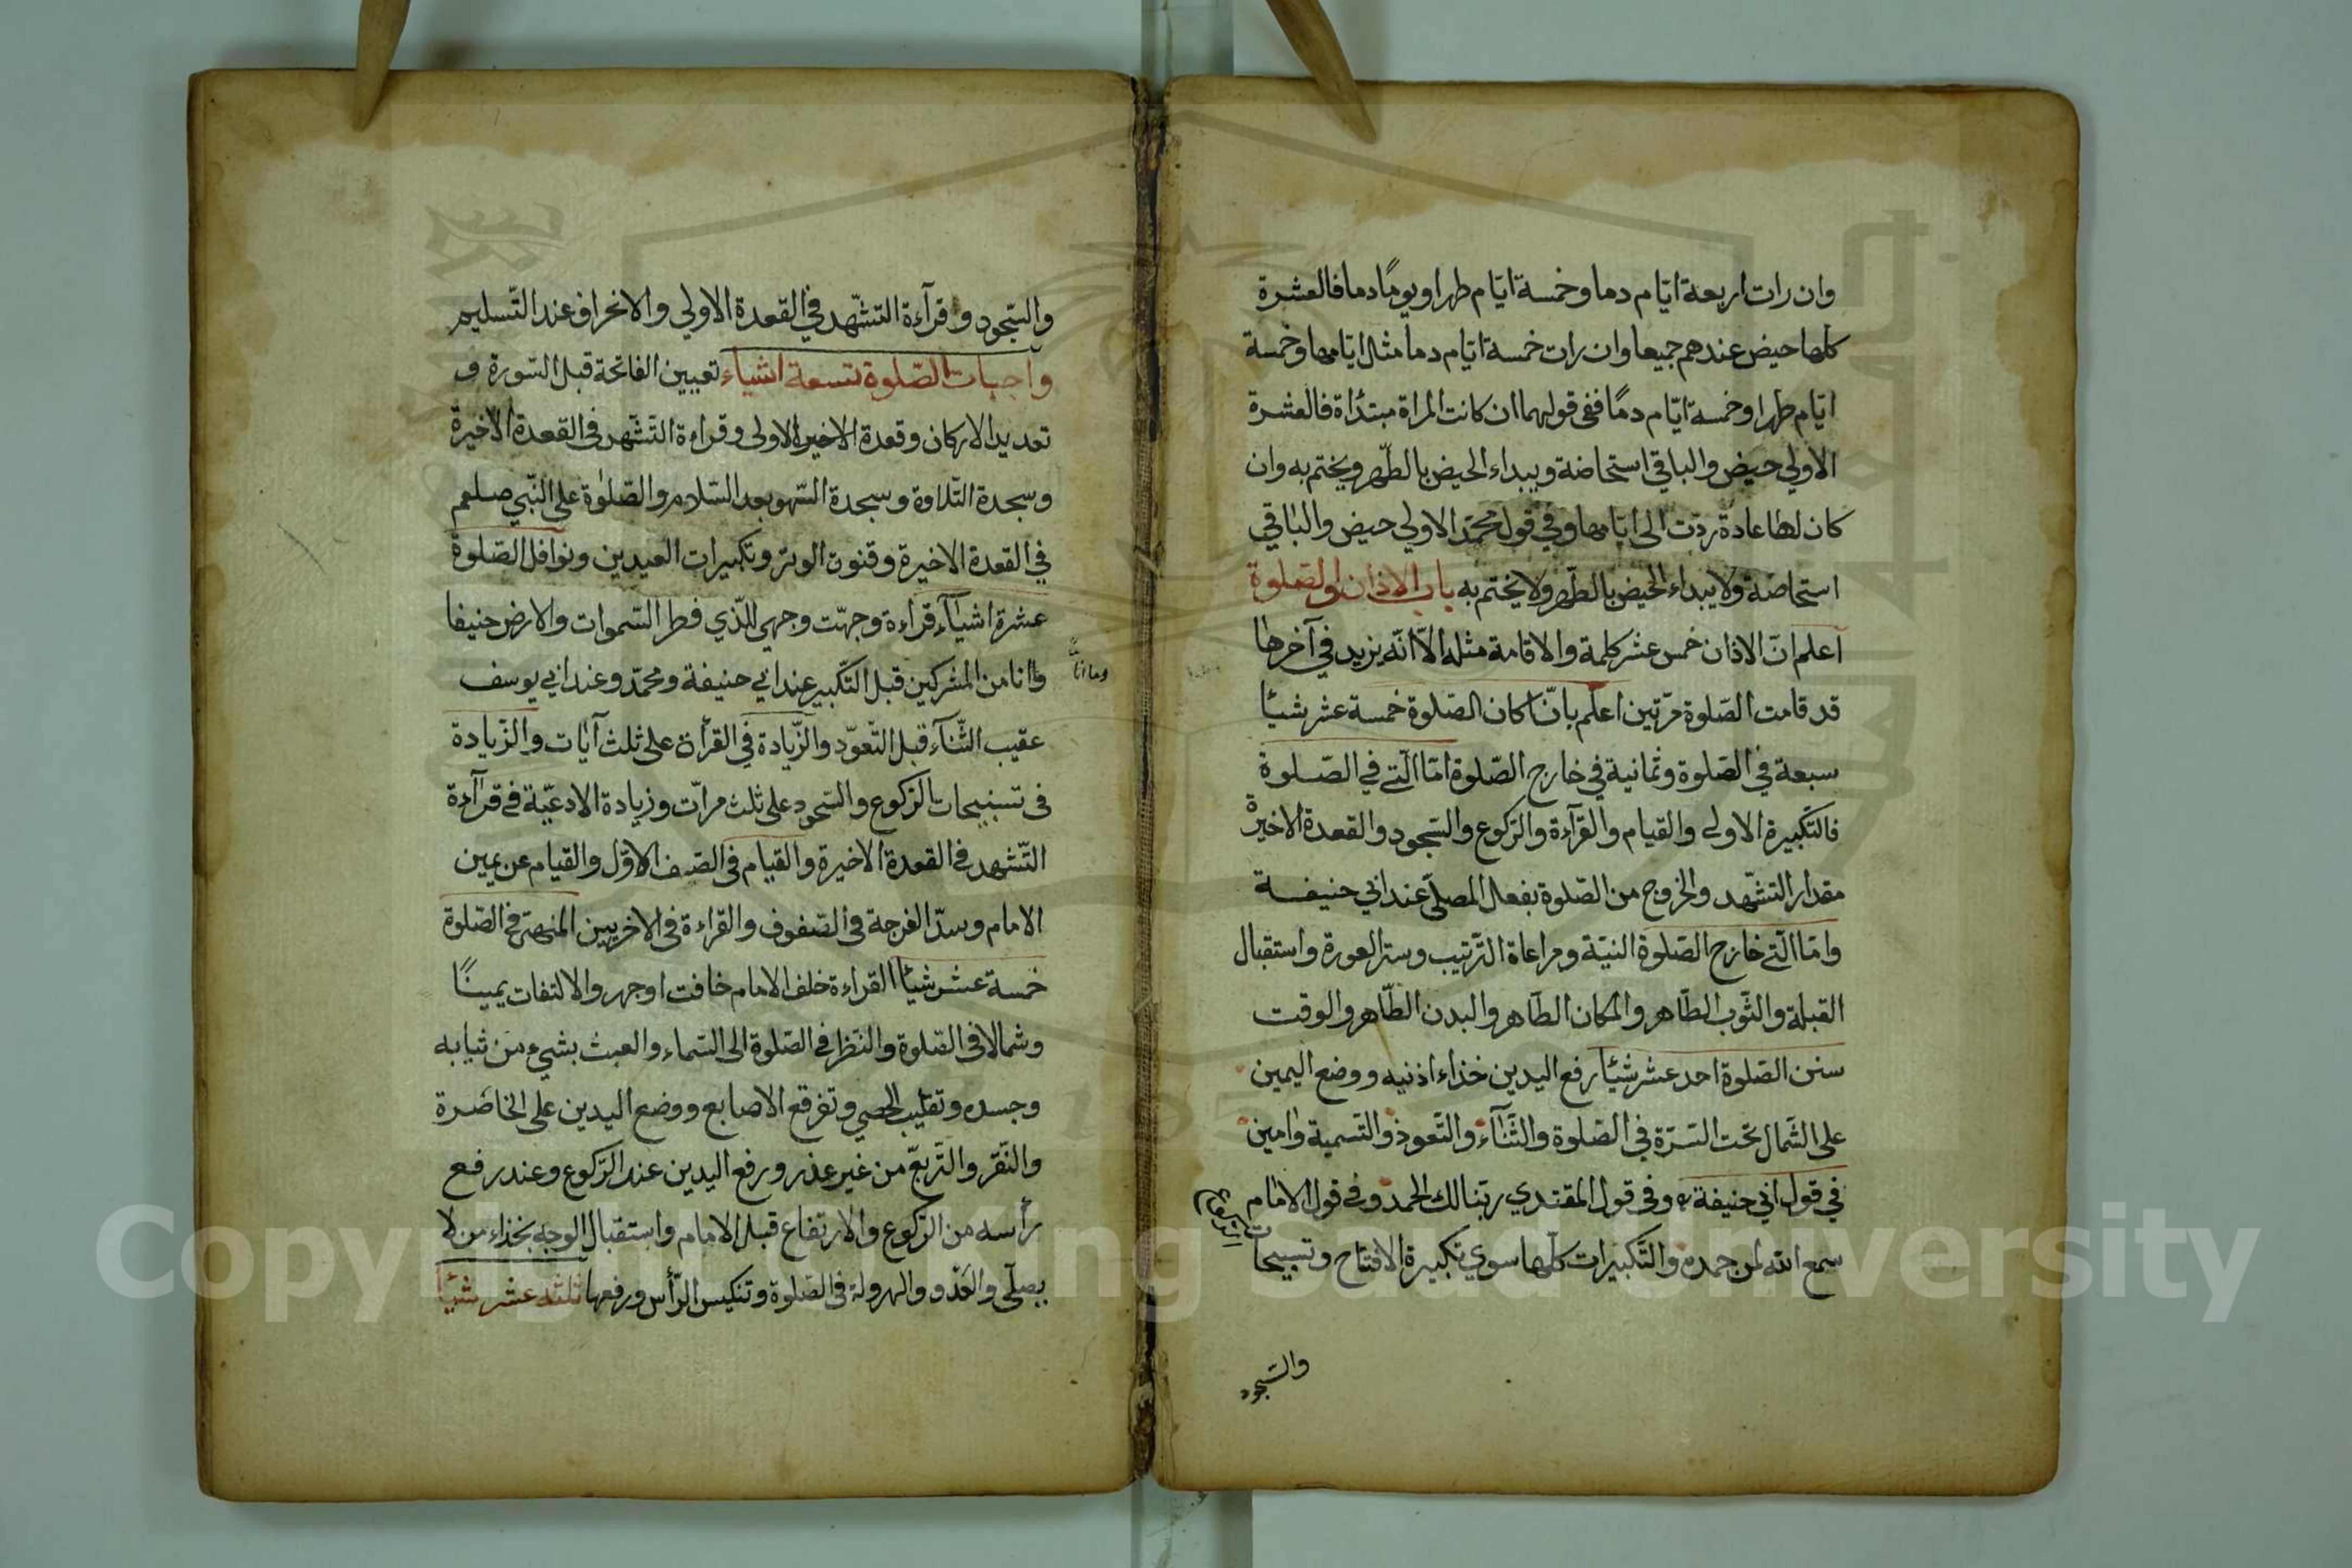 وان رات اربعة ايّام دما وخمسة ايّام طهرا ويومًا دما فالعشرة
كلها حيض عندهم جميعا وان رات خمسة ايّام دما مثال ايّامها وخمسة
ايّام طهرا وخمسة ايّام دمًا ففى قولهما ان كانت المراة مبتدأة فالعشرة
الاولي حيض والباقي استحاضة ويبداء الحيض بالطّهر ويختم به وان
كان لها عادة ردّت الى ايّامها وفي قول محمّد الاولي حيض والباقي
استحاضة ولا يبداء الحيض بالطّهر ولا يختم به باب الاذان والصلوة
اعلم انّ الاذان خمس عشر كلمة والاقامة مثله الاّ انّه يزيد في آخرها
قد قامت الصّلوة مرّتين اعلم بانّ اركان الصّلوة خمسة عشر شيئًا
سبعة في الصّلوة وثمانية في خارج الصّلوة امّا الّتي في الصّلوة
فالتّكبيرة الاولى والقيام والقرآءة والرّكوع والسّجود والقعدة الاخيرة
مقدار التشّهد والخروج من الصّلوة بفعل المصلّى عند ابي حنيفة
وامّا الّتي خارج الصّلوة النيّة ومراعاة التّرتيب وستر العورة واستقبال
القبلة والثّوب الطّاهر والمكان الطّاهر والبدن الطّاهر والوقت
سنن الصّلوة احد عشر شيئًا رفع اليدين خذاء اذنيه ووضع اليمين
على الشّمال تحت السّرّة في الصّلوة والثّنآء والتّعوذ والتّسمية وامين
في قول ابي حنيفة وفى قول المقتدي ربّنا لك الحمد وفي قول الامام
سمع الله لمن حمده والتّكبيرات كلّها سوي تكبيرة الافتتاح وتسبيحات
الرّكوع
والسّجود
والسّجود وقرآءة التشّهد في القعدة الاولي والانحراف عند التّسليم
واجبات الصّلوة تسعة اشياء تعيين الفاتحة قبل السّورة و
تعديد الاركان وقعدة الاخيرة الاولى وقراءة التّشّهد فى القعدة الاخيرة
وسجدة التّلاوة وسجدة السّهو بعد السّلام والصّلوٰة على النّبي صلعم
في القعدة الاخيرة وقنوت الوتر وتكبيرات العيدين ونوافل الصّلوة
عشرة اشيآء قراءة وجّهت وجهي للّذي فطر السّموات والارض حنيفا
وانا من المشركين قبل التّكبير عند ابي حنيفة ومحمّد وعند ابي يوسف
وما انا
عقيب الثّنآء قبل التّعوّد والزّيادة في القرأة على ثلث آيات والزّيادة
فى تسبيحات الرّكوع والسّجود على ثلث مرّات وزيادة الادعيّة في قرآءة
التّشهد في القعدة الاخيرة والقيام فى الصّف الاوّل والقيام عن يمين
الامام وسدّ الفرجة في الصّفوف والقراءة فى الاخريين المنهى في الصّلوة
خمسة عشر شيئًا القراءة خلف الامام خافت او جهر والالتفات يمينًا
وشمالا فى الصّلوة والنظر في الصّلوة الى السّماء والعبث بشيء من ثيابه
وجسده وتقليب الحصي وتفرقع الاصابع ووضع اليدين على الخاصرة
والنّقر والتّربّع من غير عذر ورفع اليدين عند الرّكوع وعند رفع
رأسه من الرّكوع والارتفاع قبل الامام واستقبال الوجه بخذاء من لا
يصلّى والعَدْو والهرولة فى الصّلوة وتنكيس الرّأس ورفعها ثلثه عشر شيئًا
Copyright © King Saud University